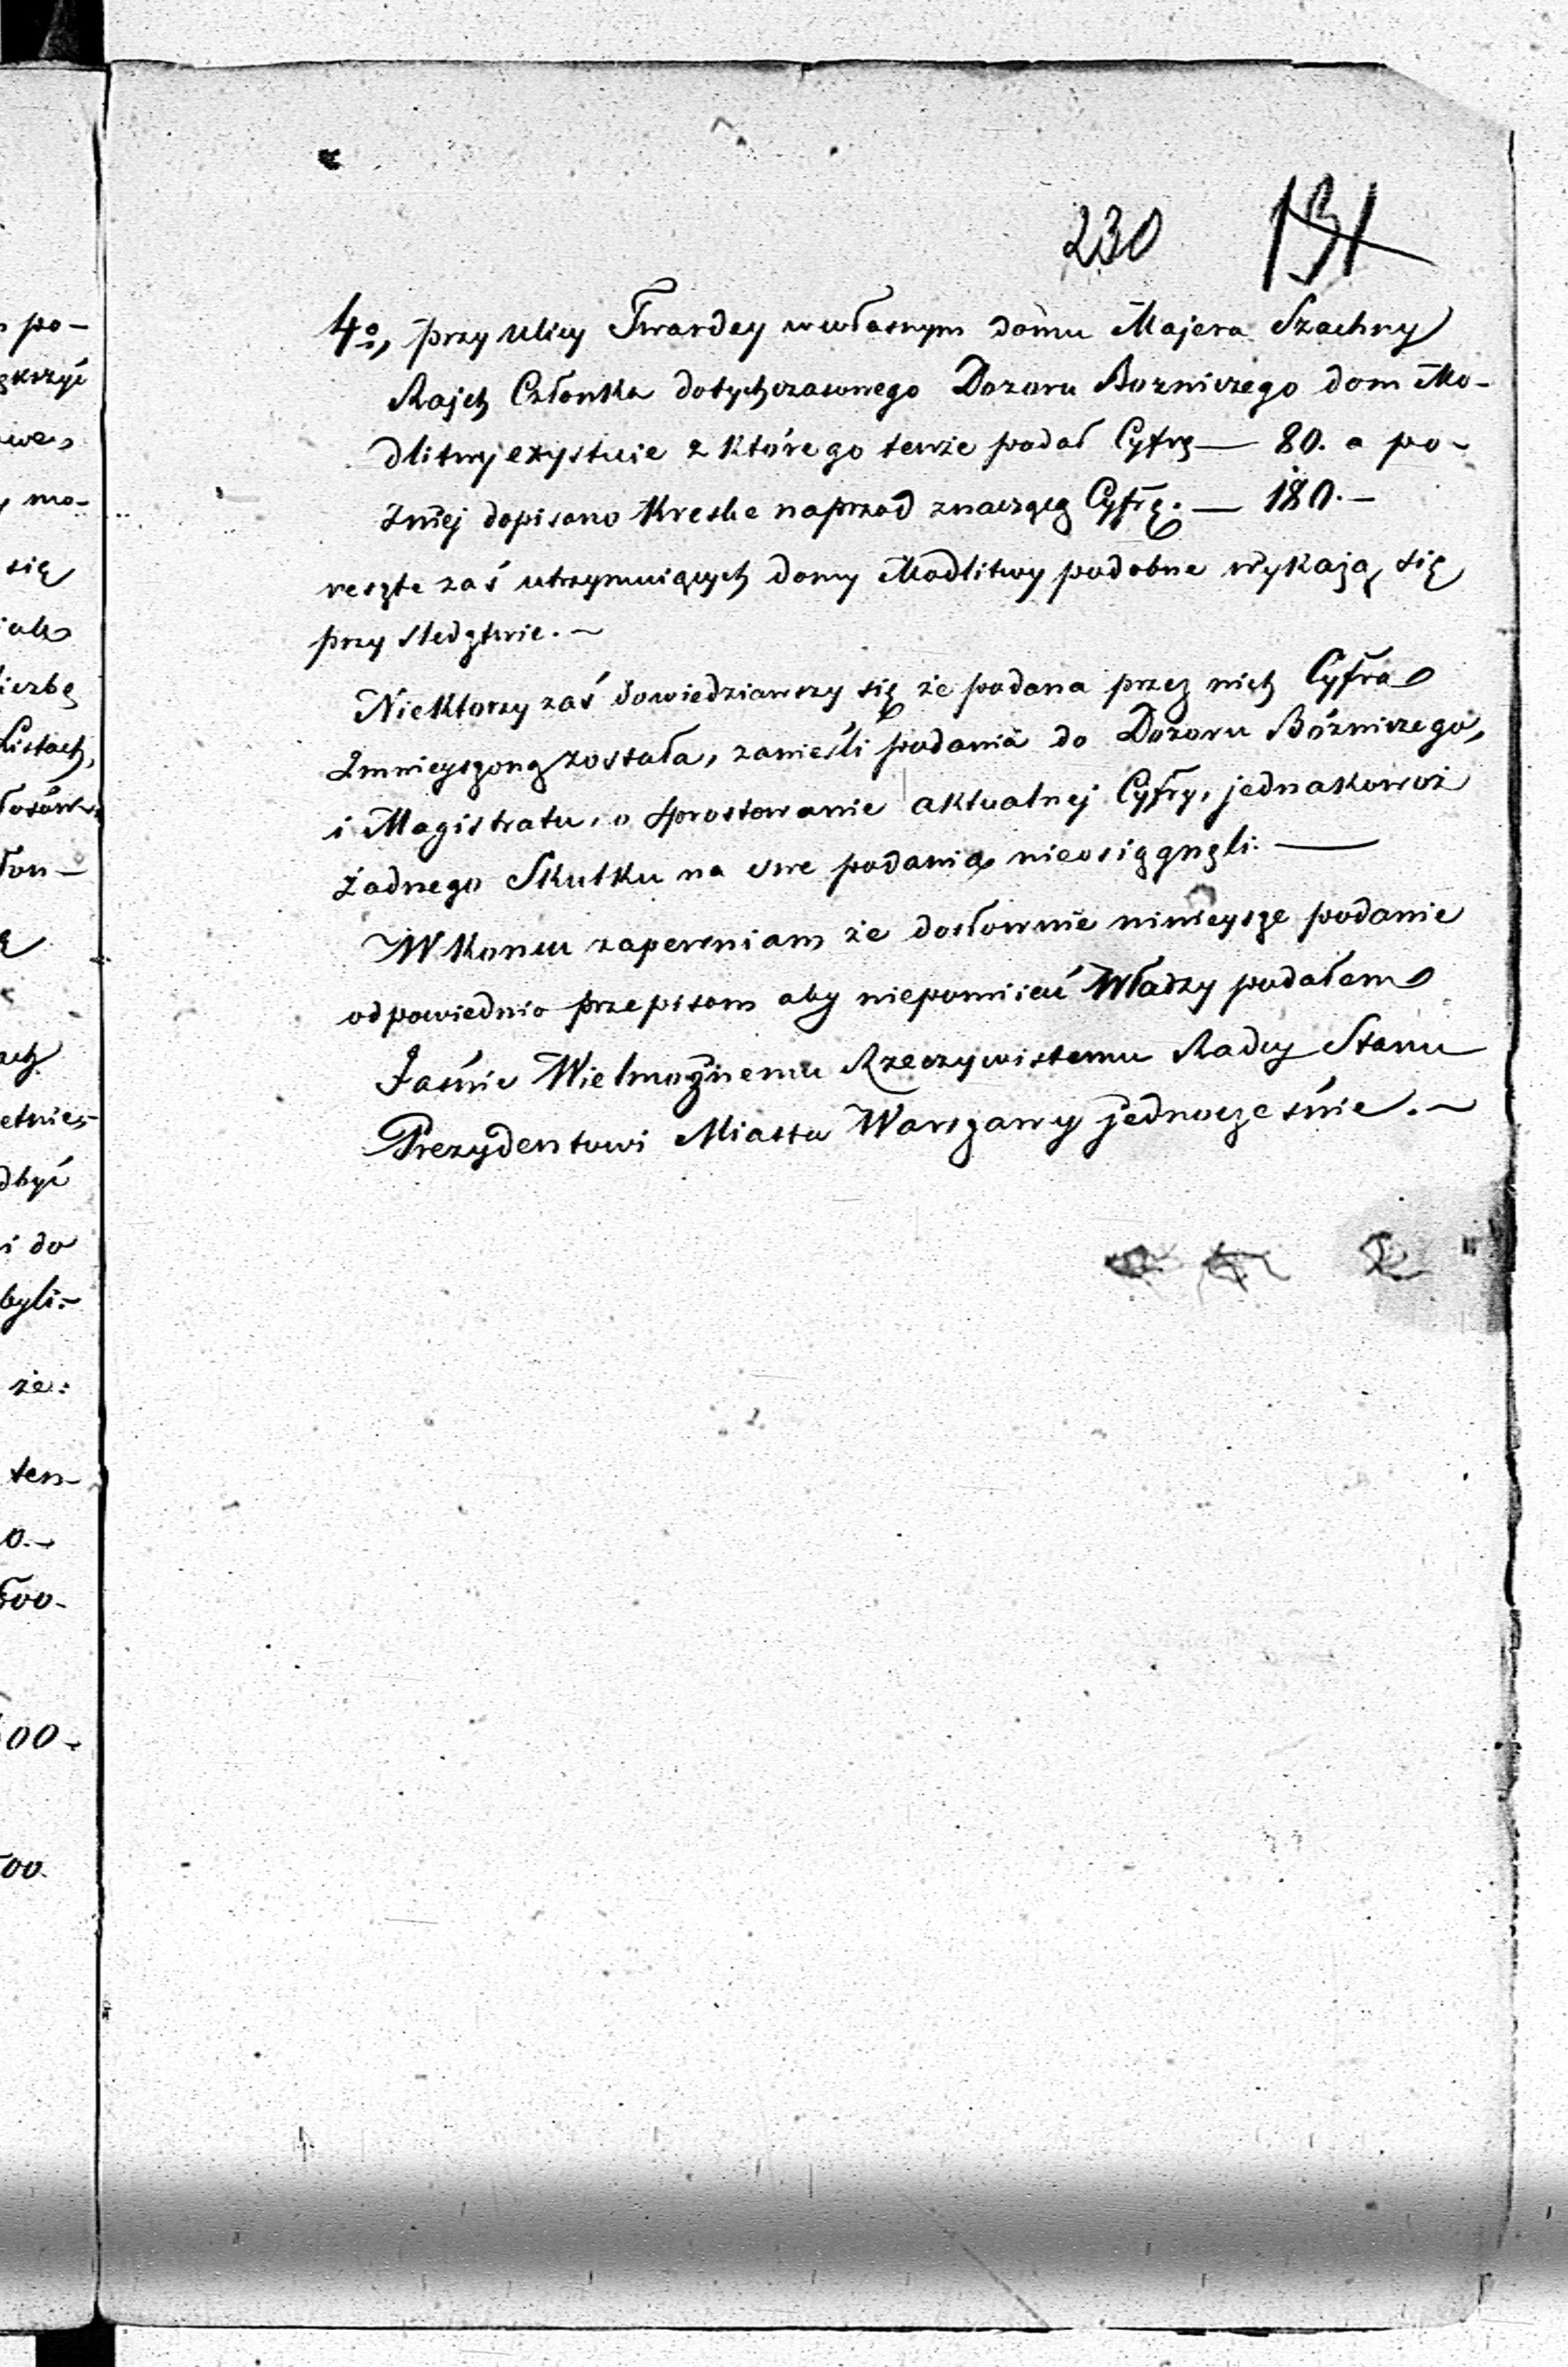 230 131
4o, przy Ulicy Twardey wewłasnym domu Majera Szachny
Rajch Członka dotychczasowego Dozoru Bozniczego dom Mo-
dlitwy exystuie z którego tenże podał Cyfrę — 80. a po-
zniej dopisano Kreske naprzod znaczącą Cyfrę. — 180. —
reszte zaś utrzymuiących domy Modlitwy podobne wykają się
przy sledztwie. —
Niektorzy zaś dowiedziawszy się że podana przez nich Cyfra
Zmnieyszoną została, zanieśli podania do Dozoru Bózniczego,
i Magistratu, o sprostowanie aktualnej Cyfry, jednakowoż
żadnego Skutku na swe podania nieosiągnęli. —
W Koncu zapewniam że dosłownie ninieysze podanie
odpowiednio przepisom aby niepomiiać Władzy podałem
Jaśnie Wielmożnemu Rzeczywistemu Radcy Stanu
Prezydentowi Miasta Warszawy jednocześnie. —
po-
się
Listach,
dbyć
i do
byli: —
że:
ten —